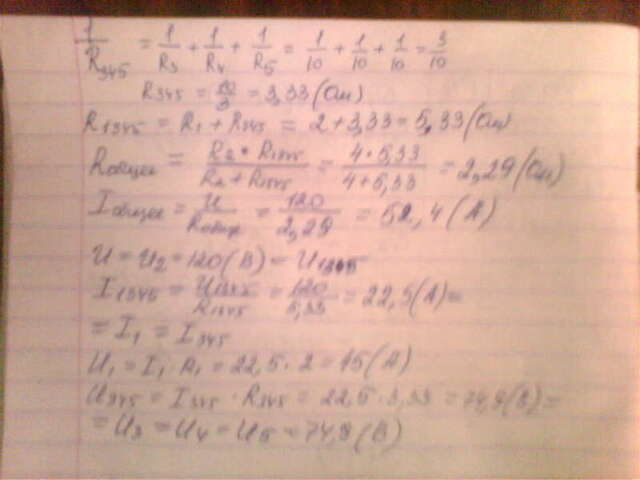 1/R345 = 1/R3 + 1/R4 + 1/R5 = 1/10 + 1/10 + 1/10 = 3/10
R345 = 10/3 = 3,33 (Ом)
R1345 = R1 + R345 = 2 + 3,33 = 5,33 (Ом)
Rобщее = R2 * R1345 / R2 + R1345 = 4 * 5,33 / 4 + 5,33 = 2,29 (Ом)
Iобщее = U / Rобщ = 120 / 2,29 = 52,4 (А)
U = U2 = 120 (В) = U1345
I1345 = U1345 / R1345 = 120 / 5,33 = 22,5 (А) =
= I1 = I345
U1 = I1 · R1 = 22,5 · 2 = 45 (А)
U345 = I345 · R345 = 22,5 · 3,33 = 74,9 (В) =
= U3 = U4 = U5 = 74,9 (В)